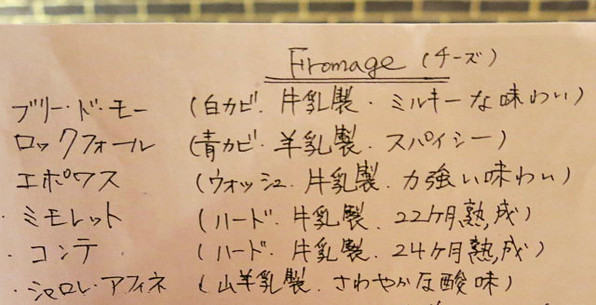 Fromage (チーズ)
ブリー・ド・モー (白カビ・牛乳製・ミルキーな味わい)
ロックフォール (青カビ・羊乳製・スパイシー)
エポワス (ウォッシュ・牛乳製・力強い味わい)
・ミモレット (ハード・牛乳製・22ヶ月熟成)
・コンテ (ハード・牛乳製・24ヶ月熟成)
・シャロレ・アフィネ (山羊乳製・さわやかな酸味)